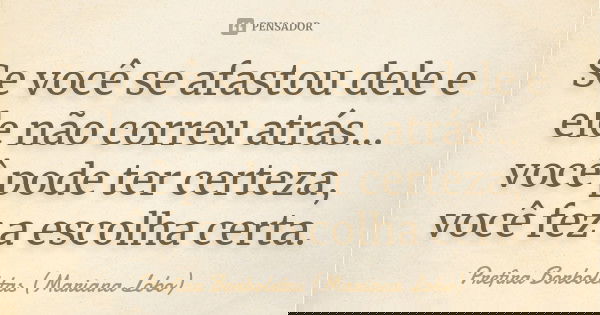 PENSADOR
Se você se afastou dele e
ele não correu atrás...
você pode ter certeza,
você fez a escolha certa.
Prefira Borboletas (Mariana Lobo)